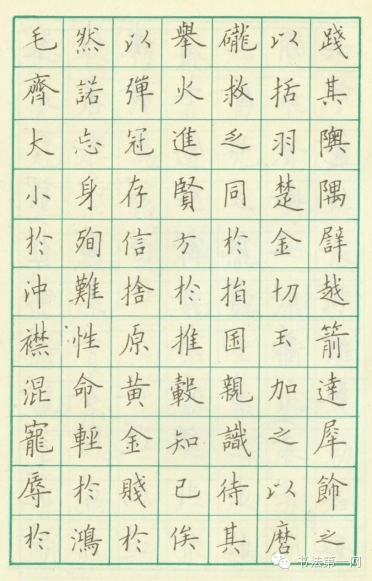 踐其隩隅譬越箭達犀飾之
以括羽楚金切玉加之以磨
礲救乏同於指囷親識待其
舉火進賢方於推轂知己俟
以彈冠存信捨原黃金賤於
然諾忘身殉難性命輕於鴻
毛齊大小於沖襟混寵辱於
书法第一网